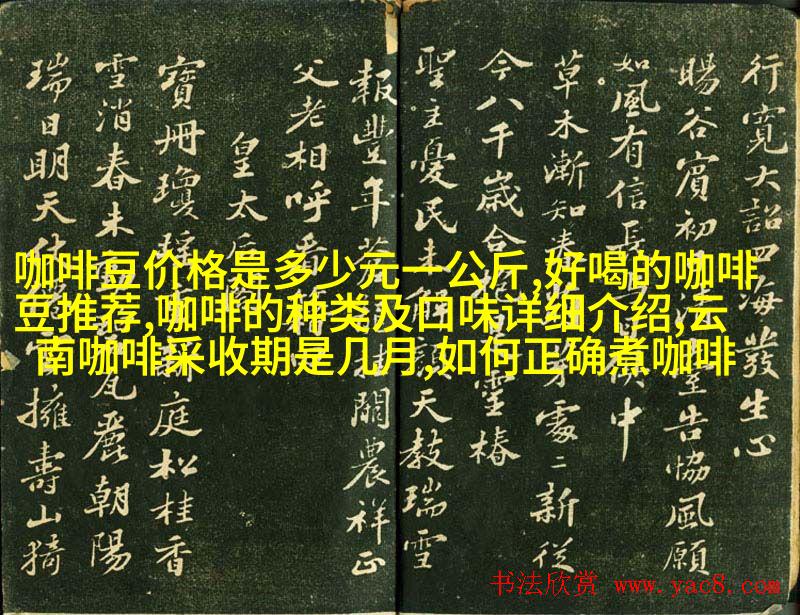 行寬大詔四海發生心
暘谷賓初臺告協風願
如風有信長中
草木漸知春處二新從
今八千歲合抱靈椿
聖主憂民解天教瑞雪
報豐年掛闕農祥正
父老相呼看
皇太后
寶冊瓊庭松桂香
雪消春未瓦麗朝陽
瑞日明天仗擁壽山猗
咖啡豆价格是多少元一公斤,好喝的咖啡
豆推荐,咖啡的种类及口味详细介绍,云
南咖啡采收期是几月,如何正确煮咖啡
书法欣赏 www.yac8.com